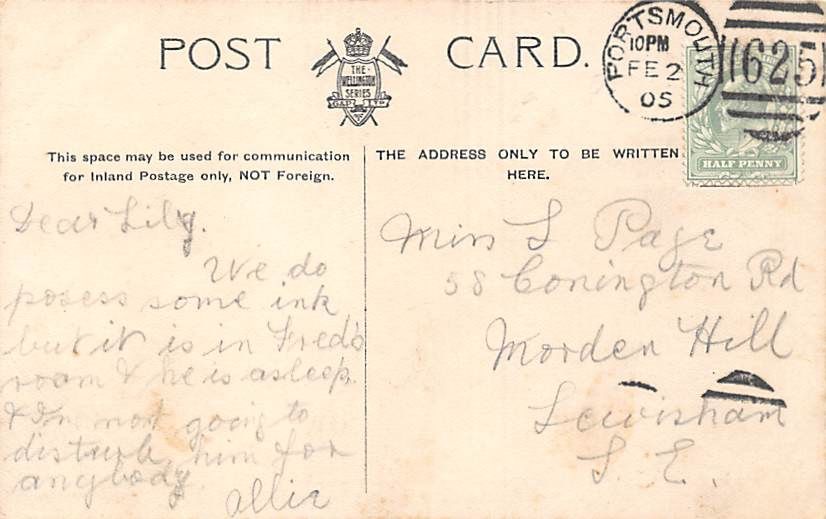 POST CARD.
THE
WELLINGTON
SERIES
G&P LTD
PORTSMOUTH
10PM
FE 2
05
625
HALF PENNY
This space may be used for communication
for Inland Postage only, NOT Foreign.
THE ADDRESS ONLY TO BE WRITTEN
HERE.
Dear Lily.
We do
posess some ink
but it is in Fred's
room & he is asleep.
& I'm not going to
disturb him for
anybody.
Ollie
Miss L Page
58 Conington Rd
Morden Hill
Lewisham
S. E.